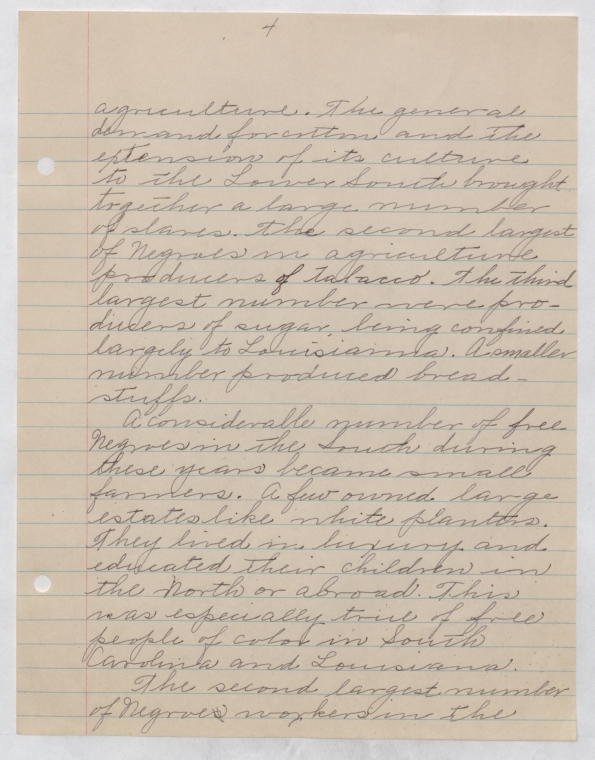 4
agriculture. The general
demand for cotton and the
extension of its culture
to the Lower South brought
together a large number
of slaves. The second largest
of Negroes in agriculture
producers of tabacco. The third
largest number were pro-
ducers of sugar, being confined
largely to Louisianna. A smaller
number produced bread-
stuffs.
A considerable number of free
Negroes in the South during
these years became small
farmers. A few owned large
estates like white planters.
They lived in luxury and
educated their children in
the North or abroad. This
was especially true of free
people of color in South
Carolina and Louisiana.
The second largest number
of Negroes workers in the